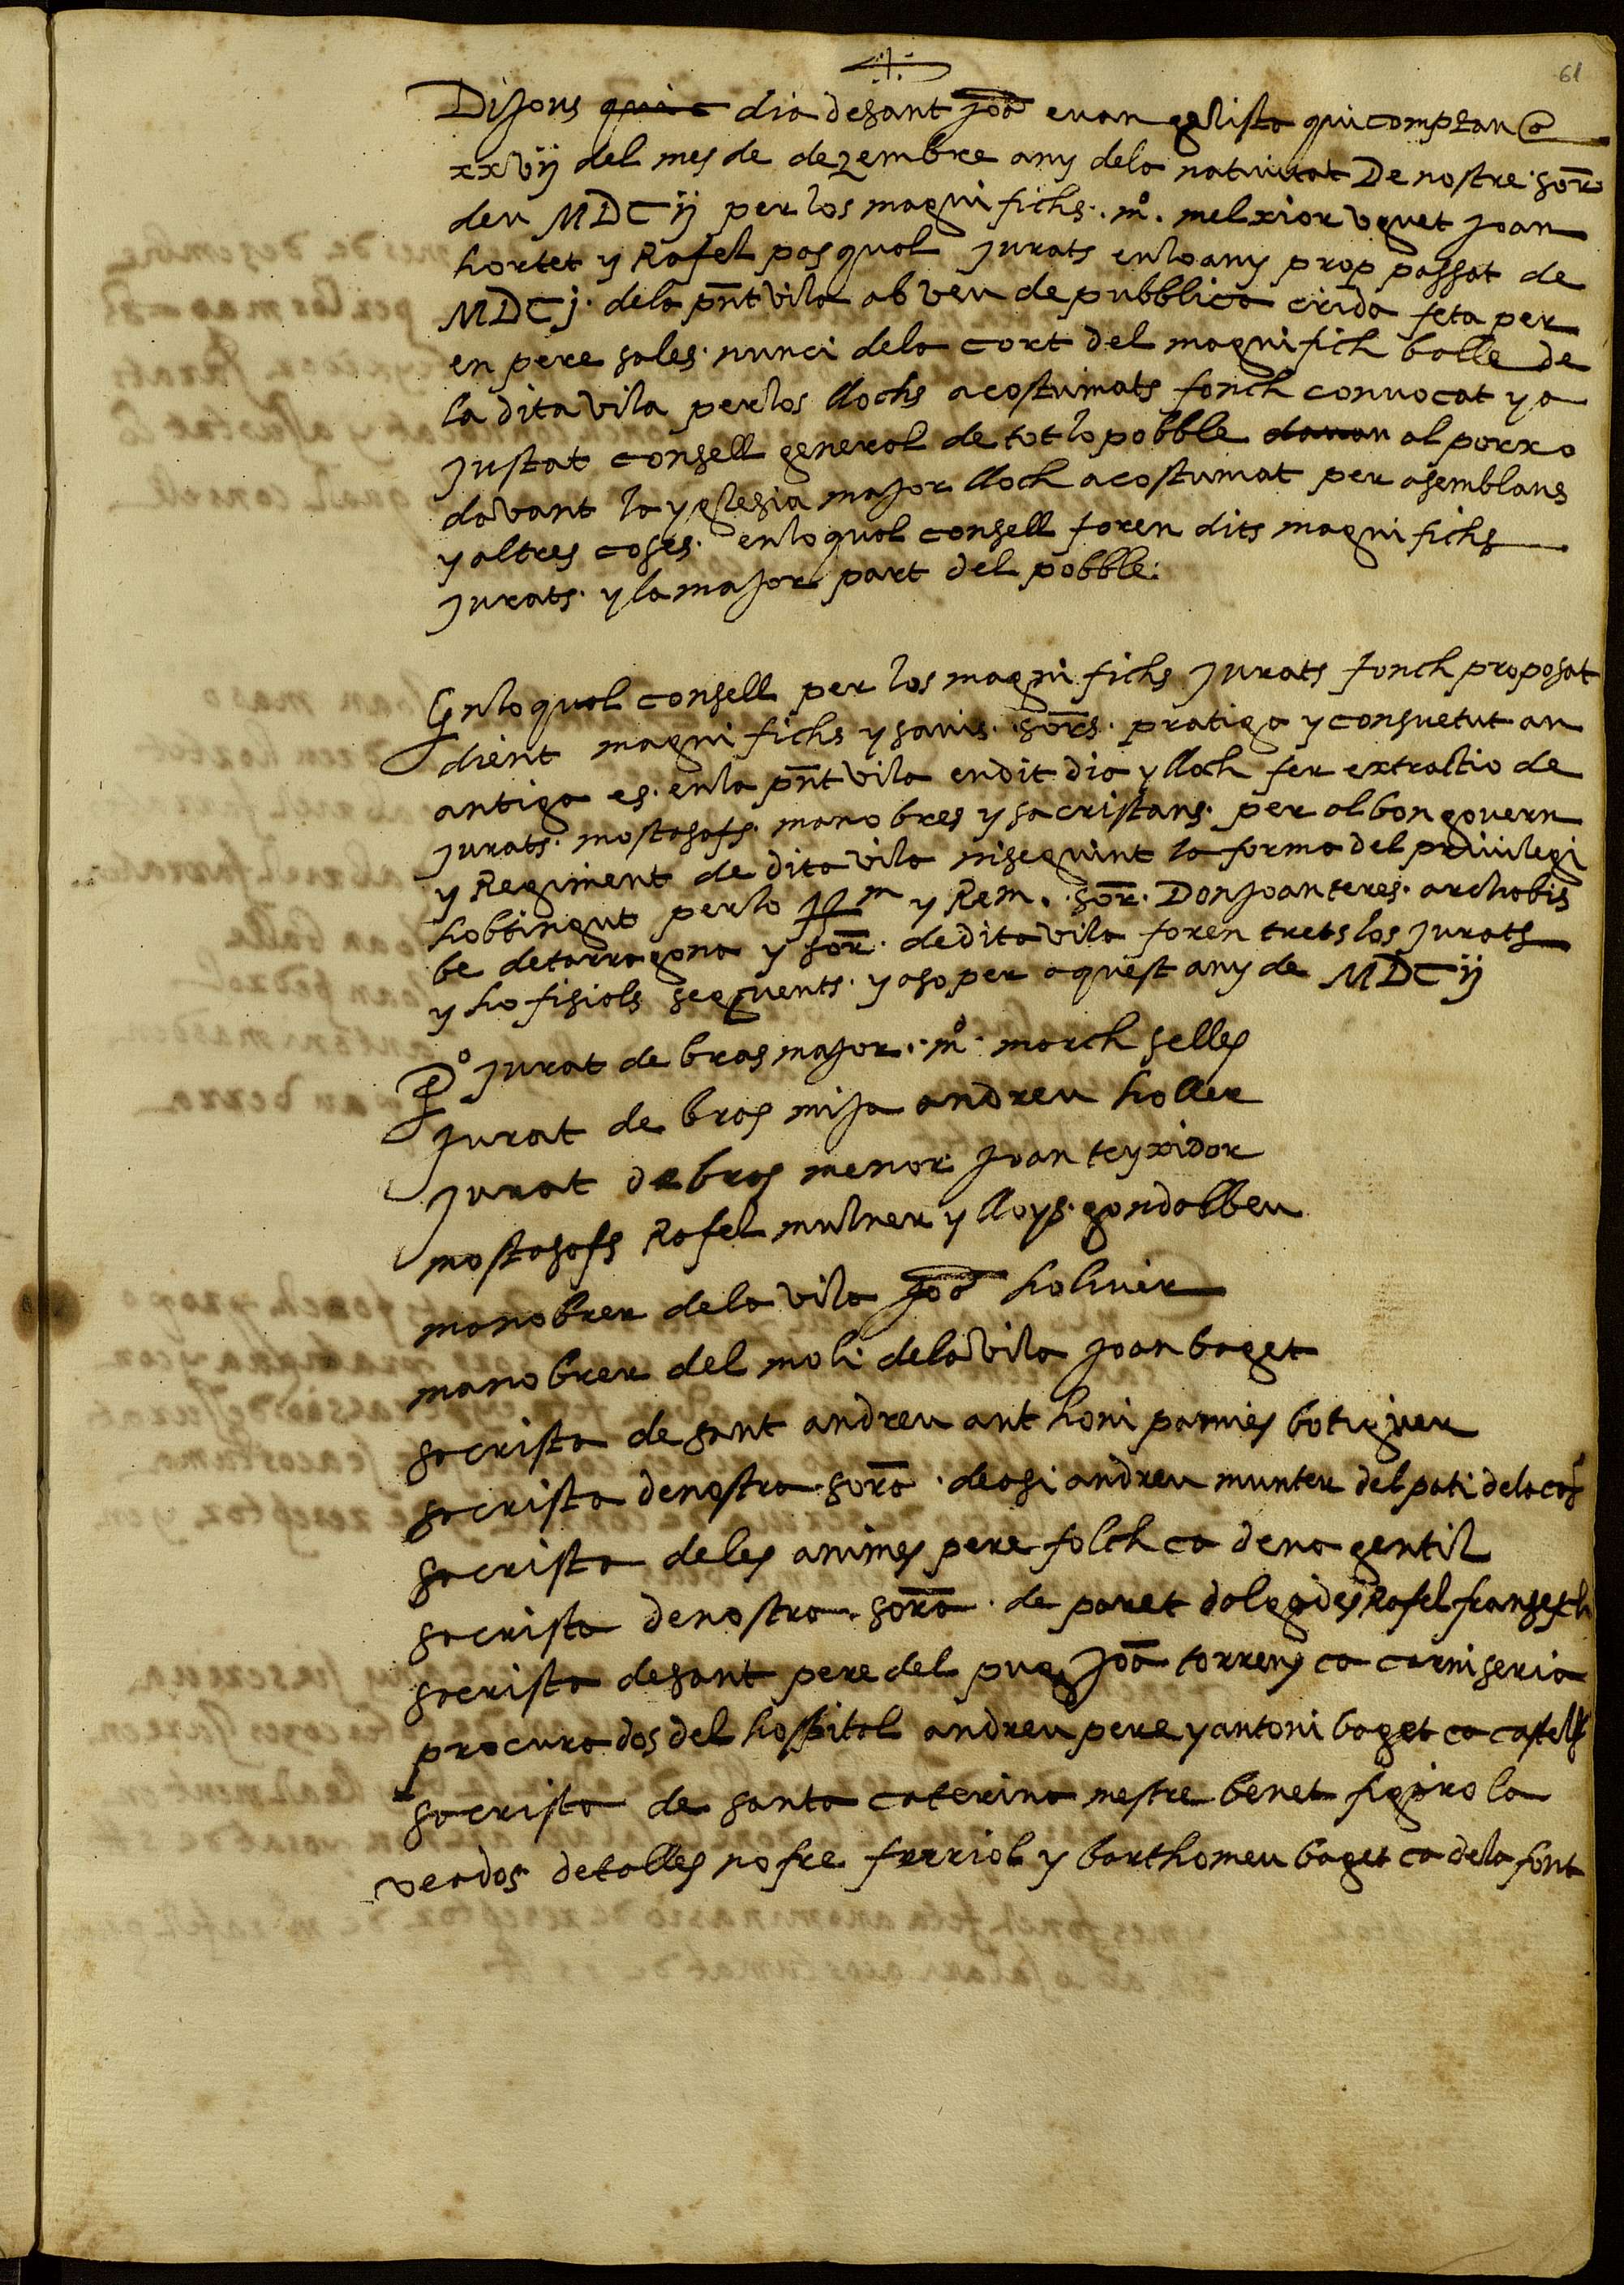 61
Dijous quic dia desant joā evangelista quicomptan a
xxvij del mes de dezembre any dela nativitat De nostre sōr
deu MDCij per los magnifichs m° melxior vguet joan
hortet y Rafel pasqual jurats enloany prop passat de
MDCj dela pn̄t vila ab veu de pubblica crida feta per
en pere sales nunci dela cort del magnifich balle de
la dita vila perlos llochs acostumats fonch convocat y a
justat consell general de tot lo pobble davan al porxo
davant la yglesia major lloch acostumat per asemblans
y altres coses enloqual consell foren dits magnifichs
jurats y la major part del pobble
Enloqual consell per los magnifichs jurats fonch proposat
dient magnifichs y savis sōrs pratiga y consuetut an
antiga es enla pn̄t vila endit dia y lloch fer extractio de
jurats mostasafs manobres y sacristans per al bon govern
y Regiment de dita vila niseguint la forma del privilegi
hobtingut perlo Ill^m y Rem. sōr Don joan teres archobis
be detarragona y sōr dedita vila foren trets los jurats
y hofisials seguents y aso per aquest any de MDCij
P° jurat de bras major m° march selles
jurat de bras mija andreu holler
jurat de bras menor joan teyxidor
mostasafs Rafel mulner y lloys gondalbeu
manobrer dela vila joā holiver
manobrer del moli dela vila joan baget
sacrista de sant andreu anthoni pamies botiguer
sacrista denostra sōra deasi andreu munter del pati dela cos
sacrista deles animes pere folch ca dena gentil
sacrista denostra sōra de paret dalgades Rafel fransesch
sacrista desant pere del pug joā torrens ca carniseria
procurados del hospital andreu pere y antoni baget ca castell
sacrista de santa caterina mestre benet figarola
veados detalles nofre ferriol y barthomeu baget ca dela font